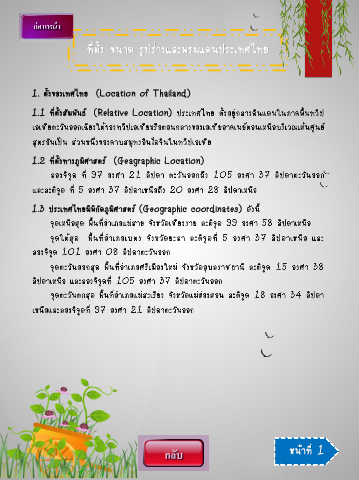 ที่ตั้ง ขนาด รูปร่างและพรมแดนประเทศไทย
1. ตั้งของประเทศไทย (Location of Thailand)
1.1 ที่ตั้งสัมพันธ์ (Relative Location) ประเทศไทย ตั้งอยู่กลางดินแดนในภาคพื้นทวีป
เอเชียตะวันออกเฉียงใต้ของทวีปเอเชียหรือตอนกลางของเอเชียอาคเนย์ตอนเหนือบริเวณเส้นศูนย์
สูตรอันเป็น ส่วนหนึ่งของคาบสมุทรอินโดจีนในทวีปเอเชีย
1.2 ที่ตั้งทางภูมิศาสตร์ (Geagraphic Location)
ลองจิจูด ที่ 97 องศา 21 ลิปดา ตะวันออกถึง 105 องศา 37 ลิปดาตะวันออก
และละติจูด ที่ 5 องศา 37 ลิปดาเหนือถึง 20 องศา 28 ลิปดาเหนือ
1.3 ประเทศไทยมีพิกัดภูมิศาสตร์ (Geographic coordinates) ดังนี้
จุดเหนือสุด พื้นที่อำเภอแม่สาย จังหวัดเชียงราย ละติจูด 99 องศา 58 ลิปดาเหนือ
จุดใต้สุด พื้นที่อำเภอเบตง จังหวัดยะลา ละติจูดที่ 5 องศา 37 ลิปดาเหนือ และ
ลองจิจูด 101 องศา 08 ลิปดาตะวันออก
จุดตะวันออกสุด พื้นที่อำเภอศรีเมืองใหม่ จังหวัดอุบลราชธานี ละติจูด 15 องศา 38
ลิปดาเหนือ และลองจิจูดที่ 105 องศา 37 ลิปดาตะวันออก
จุดตะวันตกสุด พื้นที่อำเภอแม่สะเรียง จังหวัดแม่ฮ่องสอน ละติจูด 18 องศา 34 ลิปดา
เหนือและลองจิจูดที่ 97 องศา 21 ลิปดาตะวันออก
กลับ
หน้าที่ 1